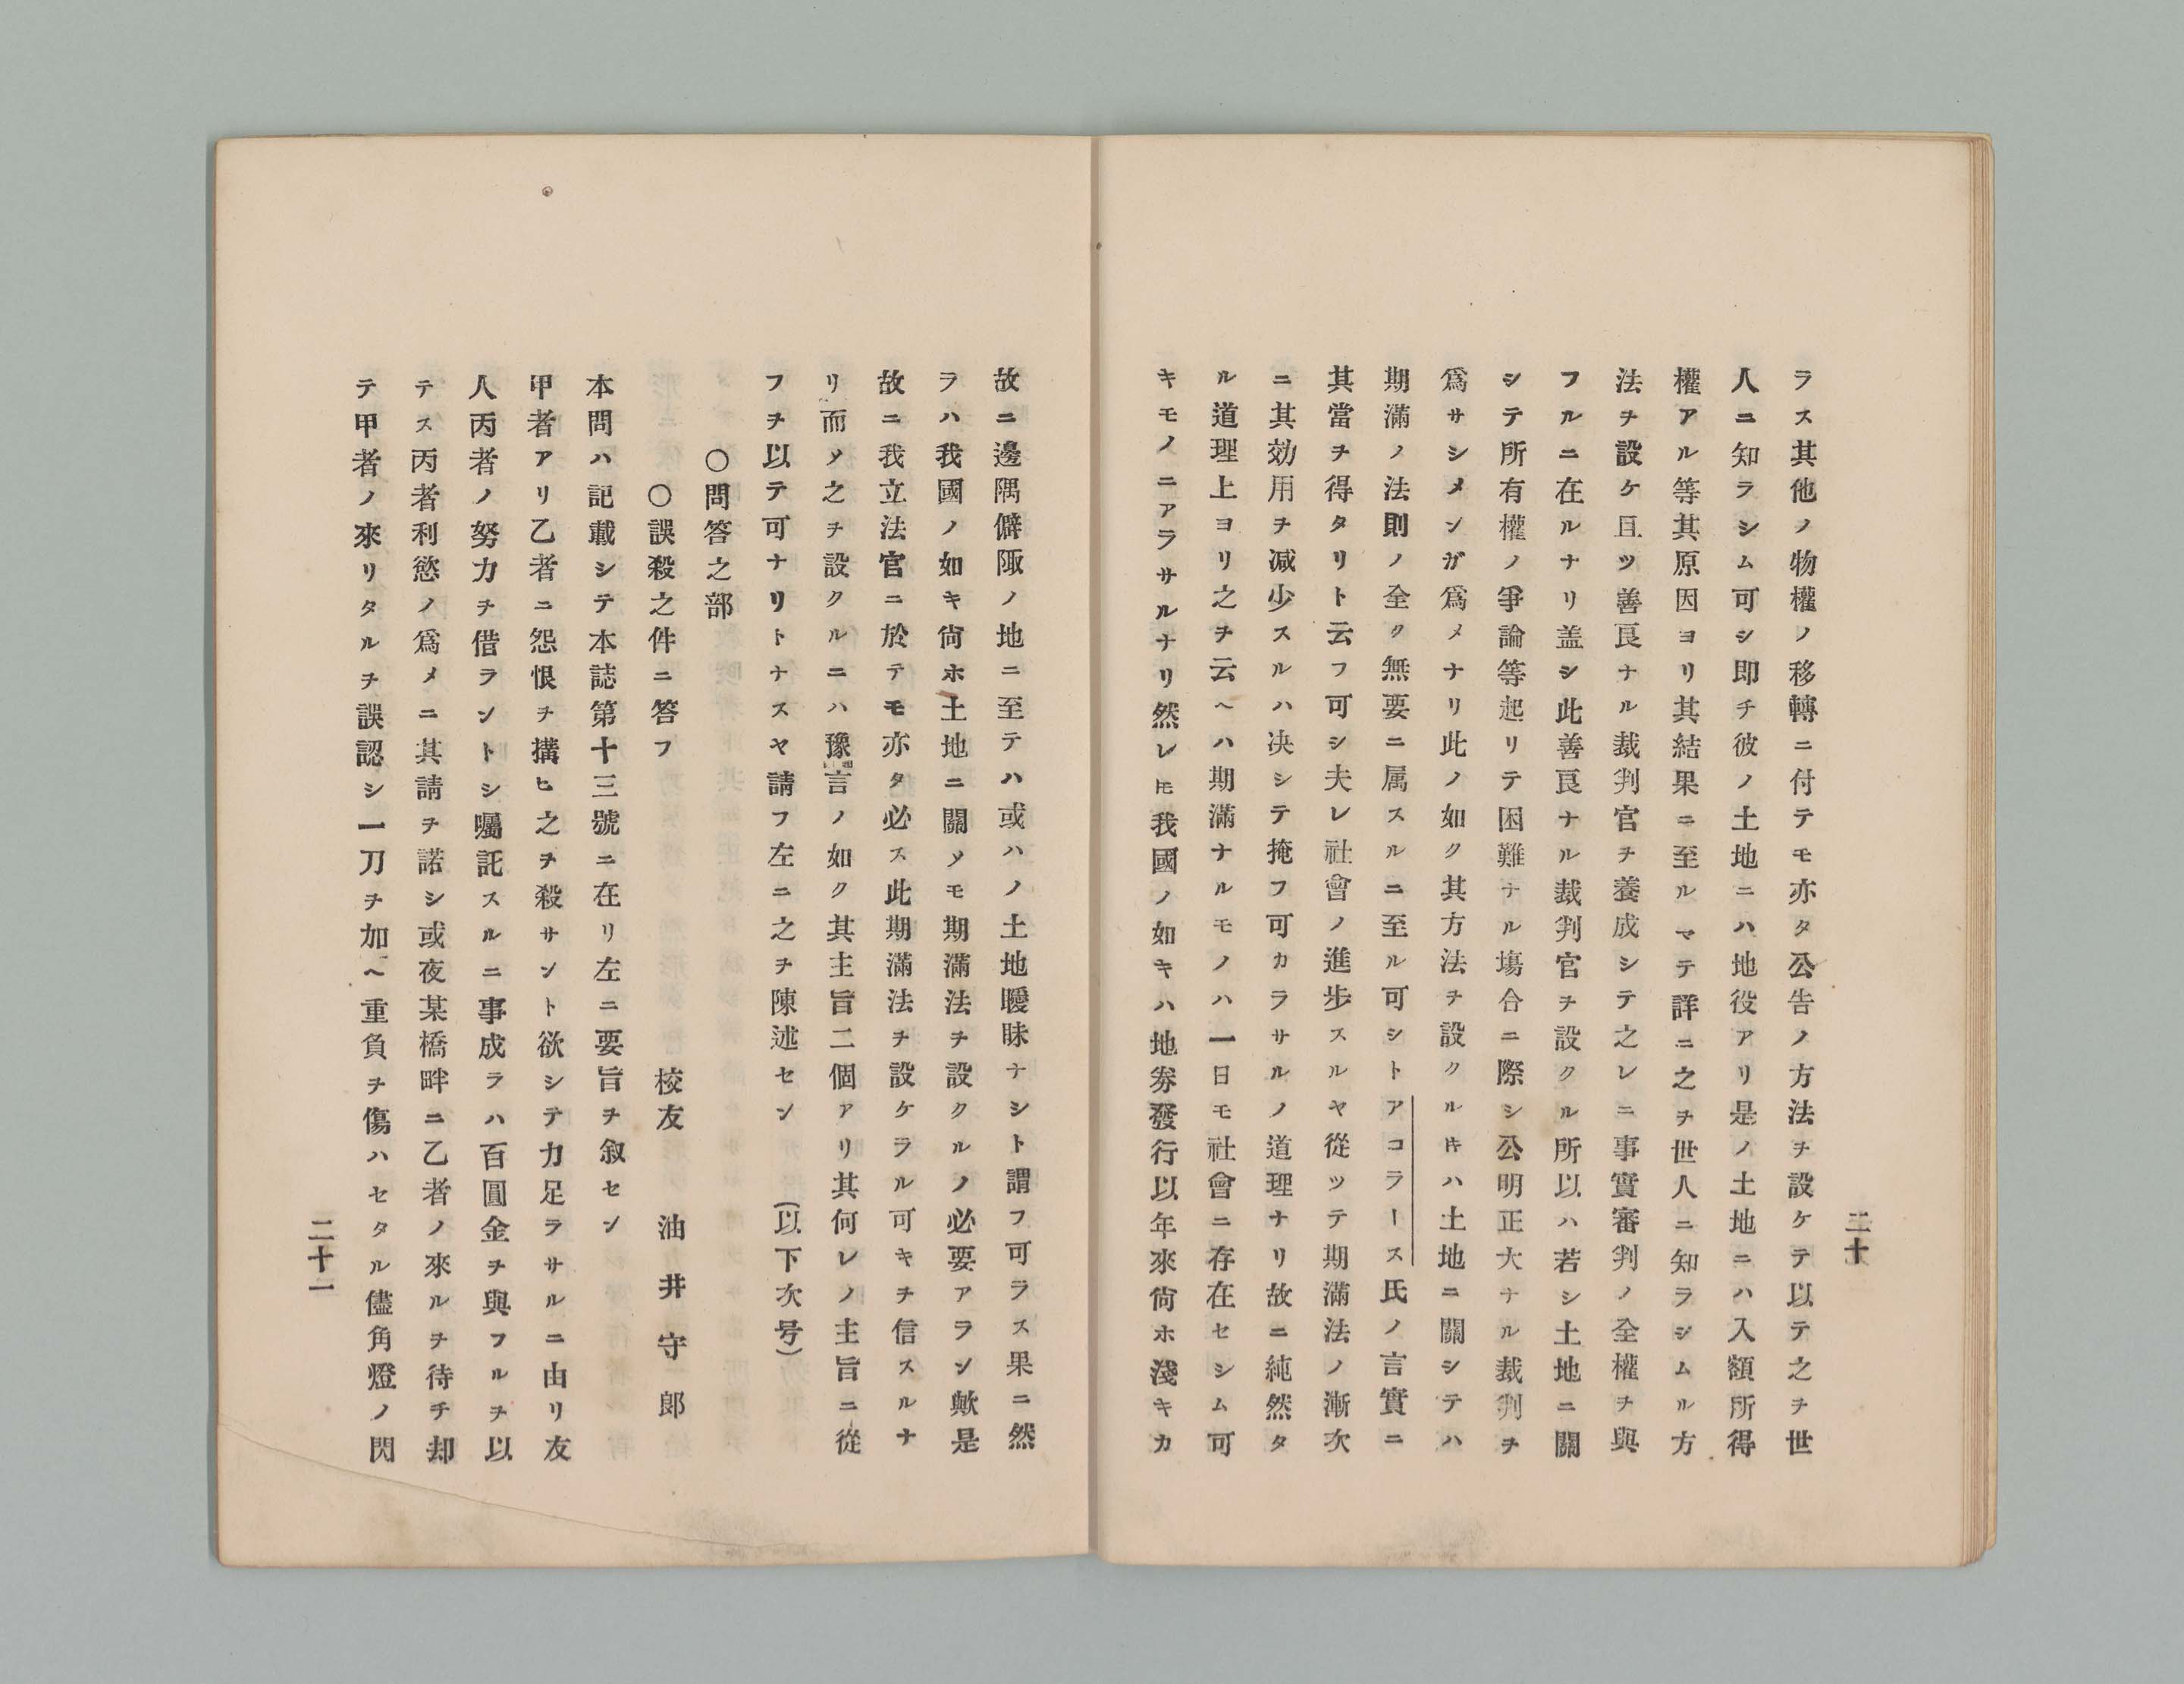 二十
ラス其他ノ物權ノ移轉ニ付テモ亦タ公告ノ方法ヲ設ケテ以テ之ヲ世
人ニ知ラシム可シ即チ彼ノ土地ニハ地役アリ是ノ土地ニハ入額所得
權アル等其原因ヨリ其結果ニ至ルマテ詳ニ之ヲ世人ニ知ラシムル方
法ヲ設ケ且ツ善良ナル裁判官ヲ養成シテ之レニ事實審判ノ全權ヲ與
フルニ在ルナリ盖シ此善良ナル裁判官ヲ設クル所以ハ若シ土地ニ關
シテ所有權ノ爭論等起リテ困難ナル塲合ニ際シ公明正大ナル裁判ヲ
爲サシメンガ爲メナリ此ノ如ク其方法ヲ設クルキハ土地ニ關シテハ
期滿ノ法則ノ全ク無要ニ属スルニ至ル可シトアコラース氏ノ言實ニ
其當ヲ得タリト云フ可シ夫レ社會ノ進步スルヤ從ツテ期滿法ノ漸次
ニ其効用ヲ减少スルハ决シテ掩フ可カラサルノ道理ナリ故ニ純然タ
ル道理上ヨリ之ヲ云ヘハ期滿ナルモノハ一日モ社會ニ存在セシム可
キモノニアラサルナリ然レ𪜈我國ノ如キハ地劵發行以年來尙ホ淺キカ
故ニ邊隅僻陬ノ地ニ至テハ或ハノ土地曖昧ナシト謂フ可ラス果ニ然
ラハ我國ノ如キ尙ホ土地ニ關メモ期滿法ヲ設クルノ必要アラン歟是
故ニ我立法官ニ於テモ亦タ必ス此期滿法ヲ設ケラル可キヲ信スルナ
リ而メ之ヲ設クルニハ豫言ノ如ク其主旨二個アリ其何レノ主旨ニ從
フヲ以テ可ナリトナスヤ請フ左ニ之ヲ陳述セン　(以下次号)
〇問答之部
〇誤殺之件ニ答フ　校友　油井守一郎
本問ハ記載シテ本誌第十三號ニ在リ左ニ要旨ヲ叙セン
甲者アリ乙者ニ怨恨ヲ搆ヒ之ヲ殺サント欲シテ力足ラサルニ由リ友
人丙者ノ努力ヲ借ラントシ囑託スルニ事成ラハ百圓金ヲ與フルヲ以
テス丙者利慾ノ爲メニ其請ヲ諾シ或夜某橋畔ニ乙者ノ來ルヲ待チ却
テ甲者ノ來リタルヲ誤認シ一刀ヲ加ヘ重負ヲ傷ハセタル儘角燈ノ閃
二十一